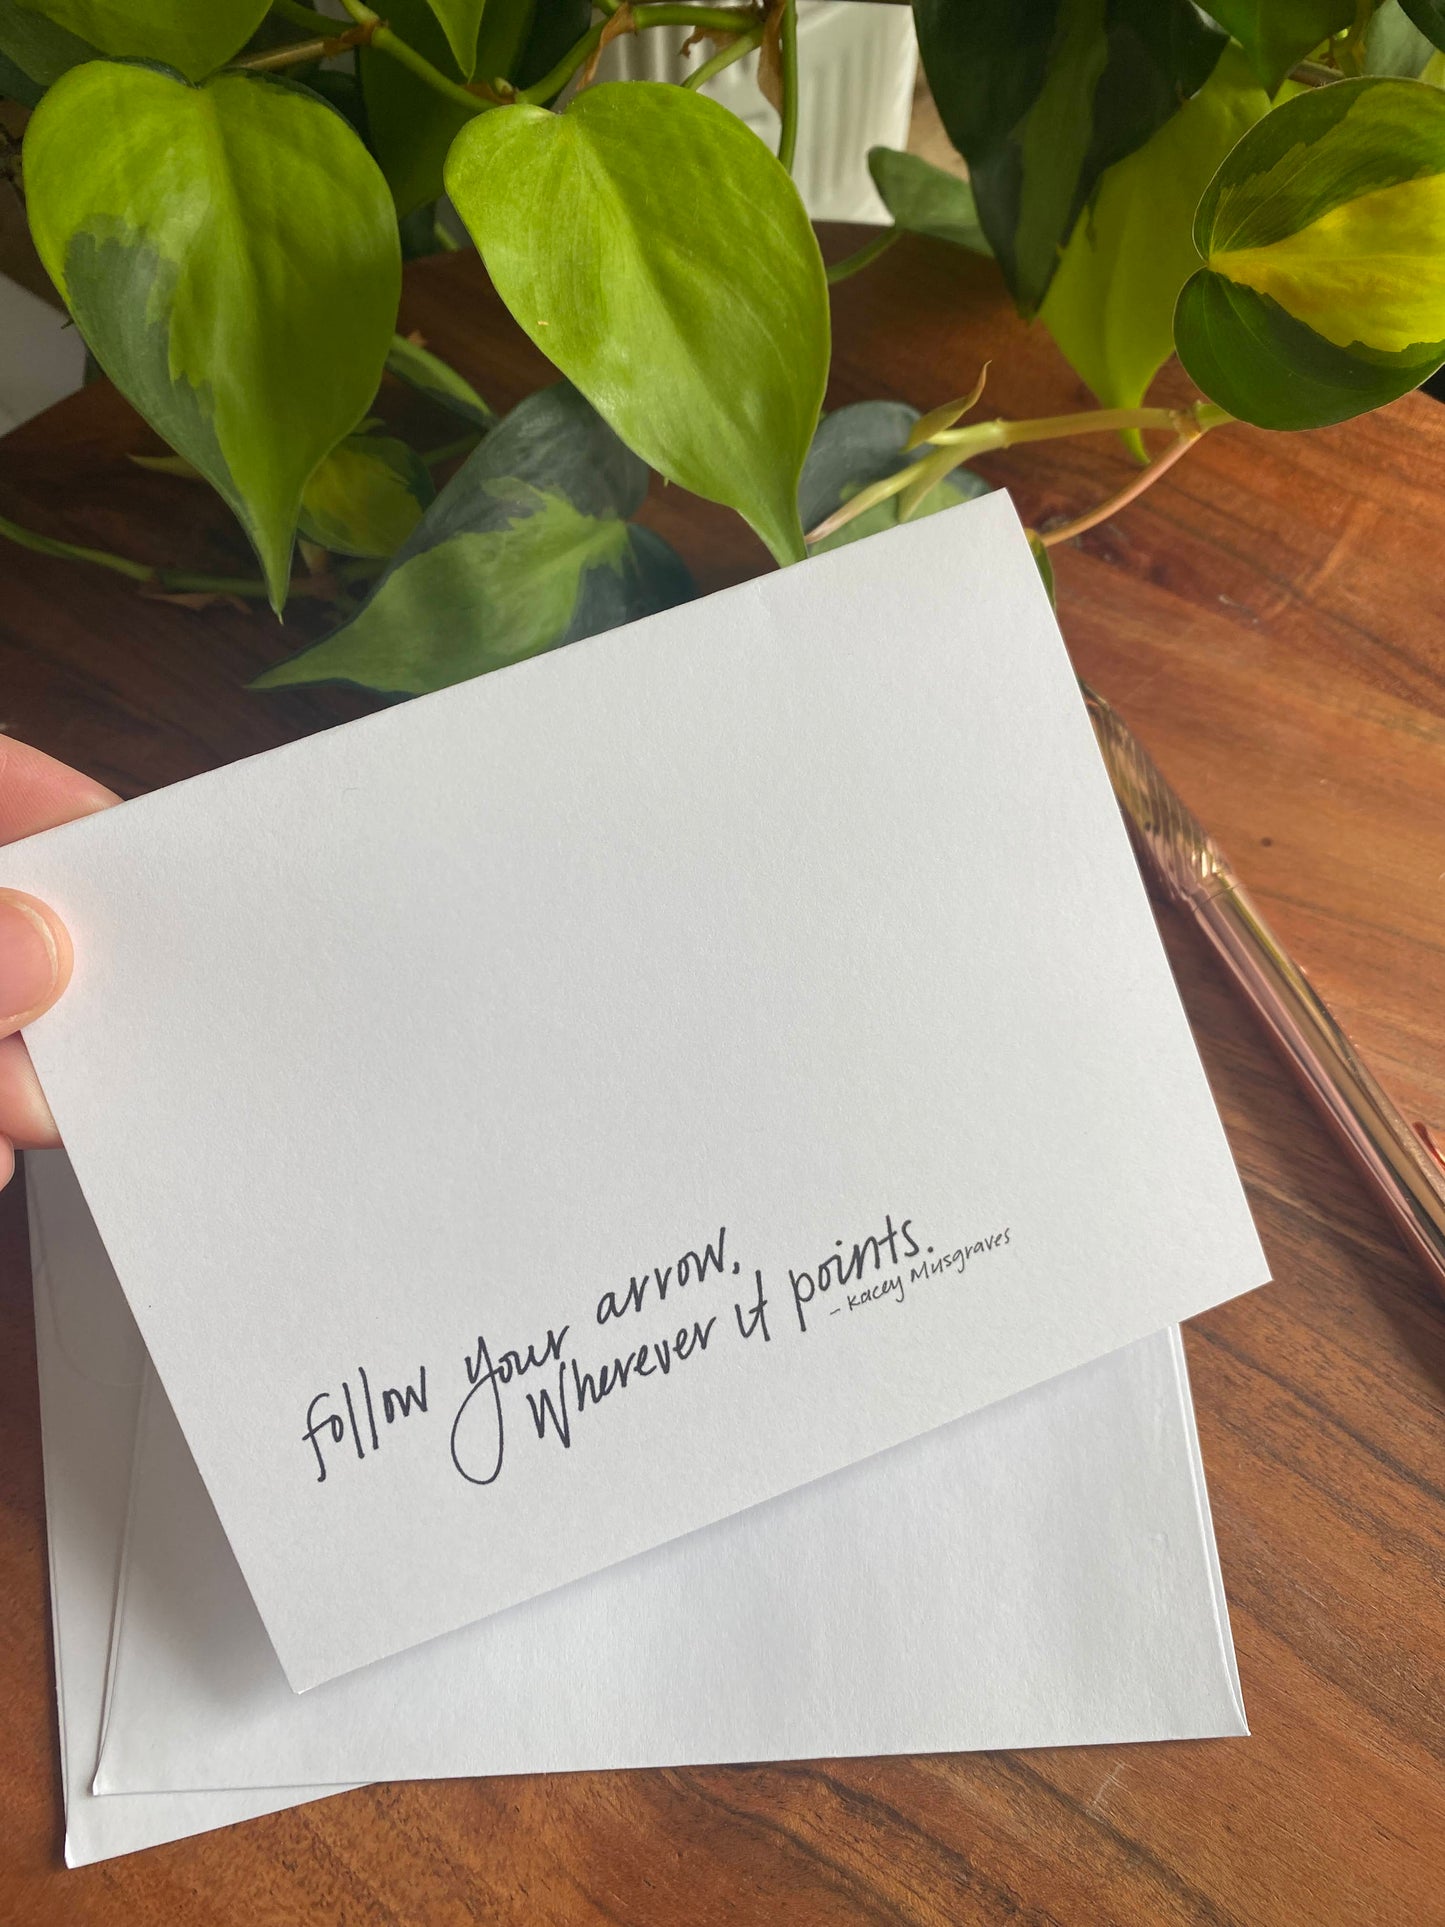 follow your arrow,
Wherever it points.
- Kacey Musgraves